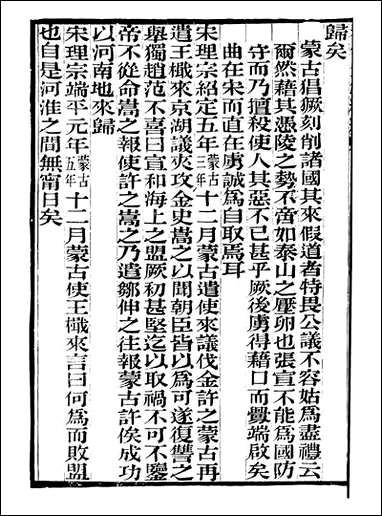 歸矣
蒙古猖厥刻削諸國其來假道者特畏公議不容姑為盡禮云
爾然藉其憑陵之勢不啻如泰山之壓卵也張宣不能為國防
守而乃擅殺使人其惡不已甚乎厥後虜得藉口而釁端啟矣
曲在宋而直在虜誠為自取焉耳
宋理宗紹定五年蒙古三年十二月蒙古遣使來議伐金許之蒙古再
遣王檝來京湖議夾攻金史嵩之以聞朝臣皆以為可遂復讐之
舉獨趙范不喜曰宣和海上之盟厥初甚堅迄以取禍不可不鑒
帝不從命嵩之報使許之嵩之乃遣鄒伸之往報蒙古許俟成功
以河南地來歸
宋理宗端平元年蒙古五年十二月蒙古使王檝來言曰何為而敗盟
也自是河淮之間無甯日矣